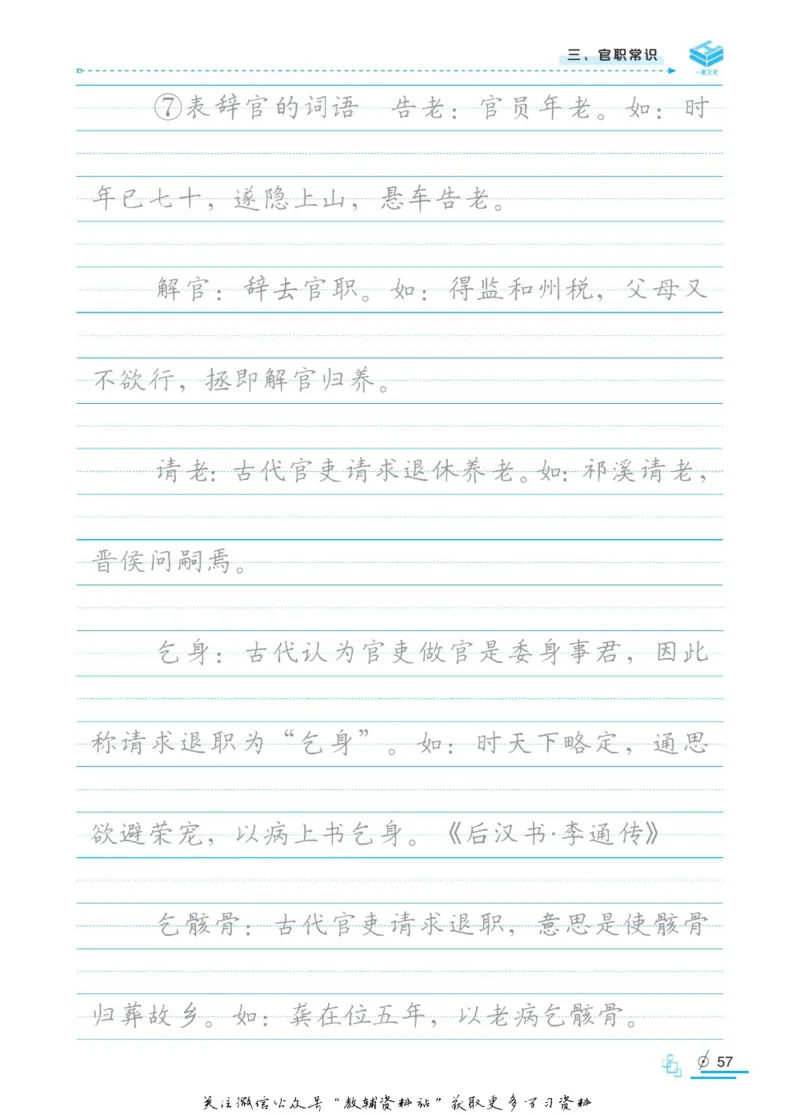 三、官职常识
一本文化
⑦表辞官的词语 告老：官员年老。如：时
年已七十，遂隐上山，悬车告老。
解官：辞去官职。如：得监和州税，父母又
不欲行，拯即解官归养。
请老：古代官吏请求退休养老。如：祁溪请老，
晋侯问嗣焉。
乞身：古代认为官吏做官是委身事君，因此
称请求退职为“乞身”。如：时天下略定，通思
欲避荣宠，以病上书乞身。《后汉书·李通传》
乞骸骨：古代官吏请求退职，意思是使骸骨
归葬故乡。如：龚在位五年，以老病乞骸骨。
57
关注微信公众号“教辅资料站”获取更多学习资料